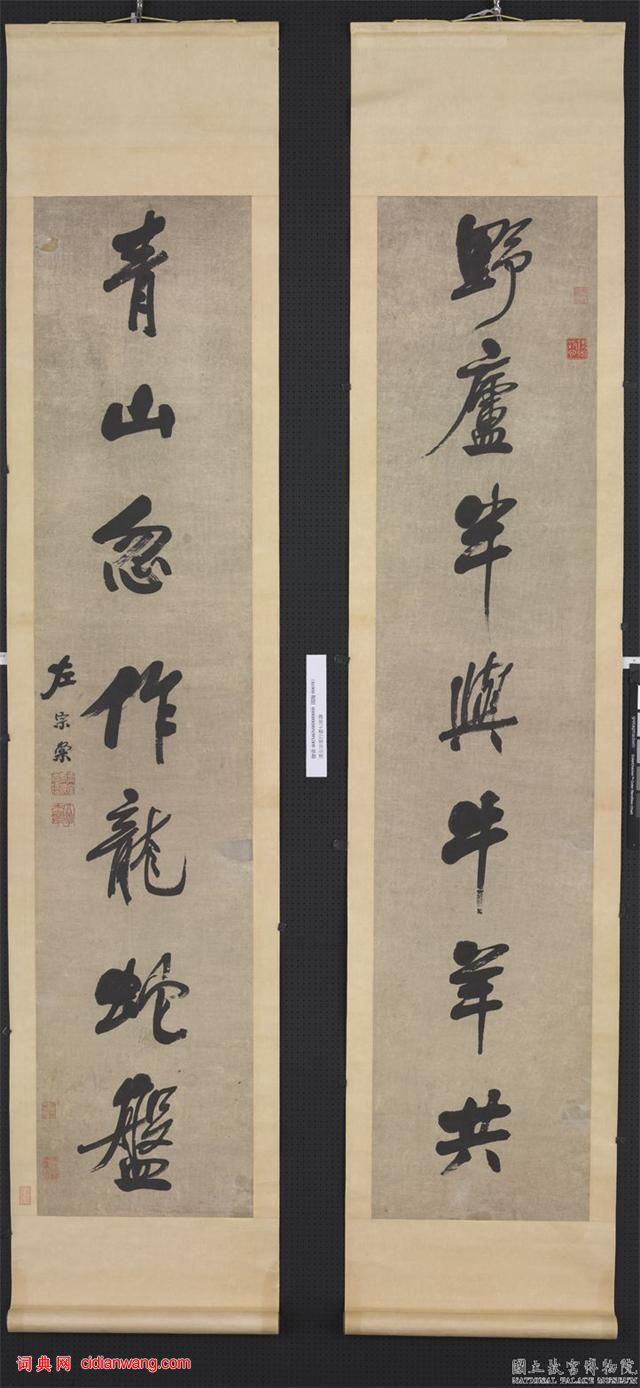 野廬半與牛羊共
青山忽作龍蛇盤
左宗棠
词典网 cidianwang.com
國立故宮博物院
NATIONAL PALACE MUSEUM